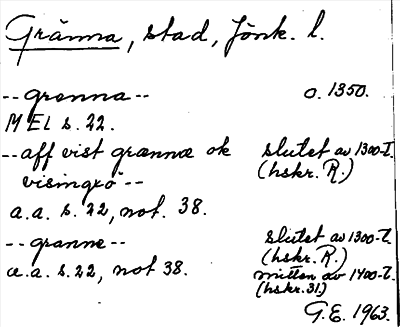 Gränna, stad, Jönk. l.
--grenna-- o. 1350.
MEL s. 22.
--aff vist grænnæ ok slutet av 1300-t.
visingxö-- (hskr. R.)
a.a. s. 22, not. 38.
--granne-- slutet av 1300-t.
(hskr. R.)
a.a. s. 22, not 38. mitten av 1400-t.
(hskr. 31.)
G.E. 1963.